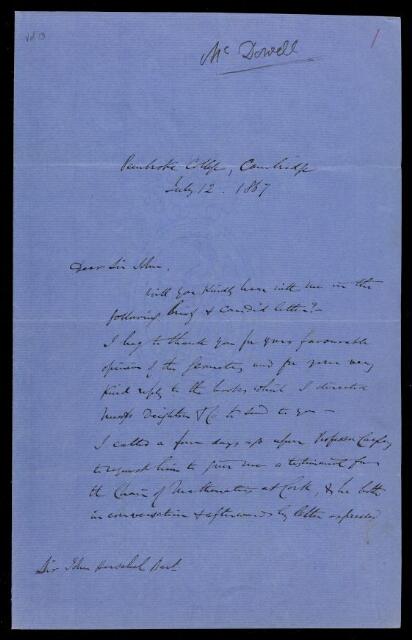 Mc Dowell
1
Pembroke College, Cambridge
July 12. 1867
Dear Sir John,
Will you kindly bear with me in the
following brief & candid letter?—
I beg to thank you for your favourable
opinion of the Geometry and for your very
kind reply to the books which I directed
Messrs Deighton & Co to send to you—
I called a few days ago upon Professor Cayley
to request him to give me a testimonial for
the Chair of Mathematics at Cork, & he both
in conversation & afterwards by letter expressed
Sir John Herschel Bart